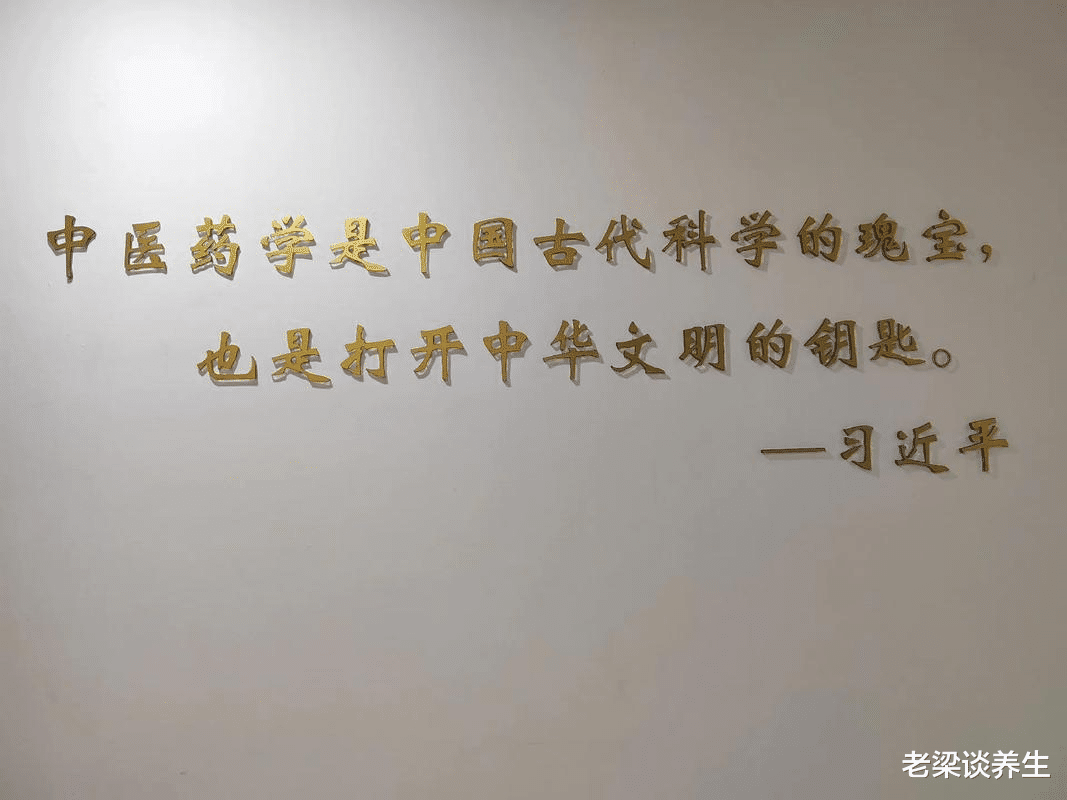 中医药学是中国古代科学的瑰宝，
也是打开中华文明的钥匙。
—习近平
老梁谈养生